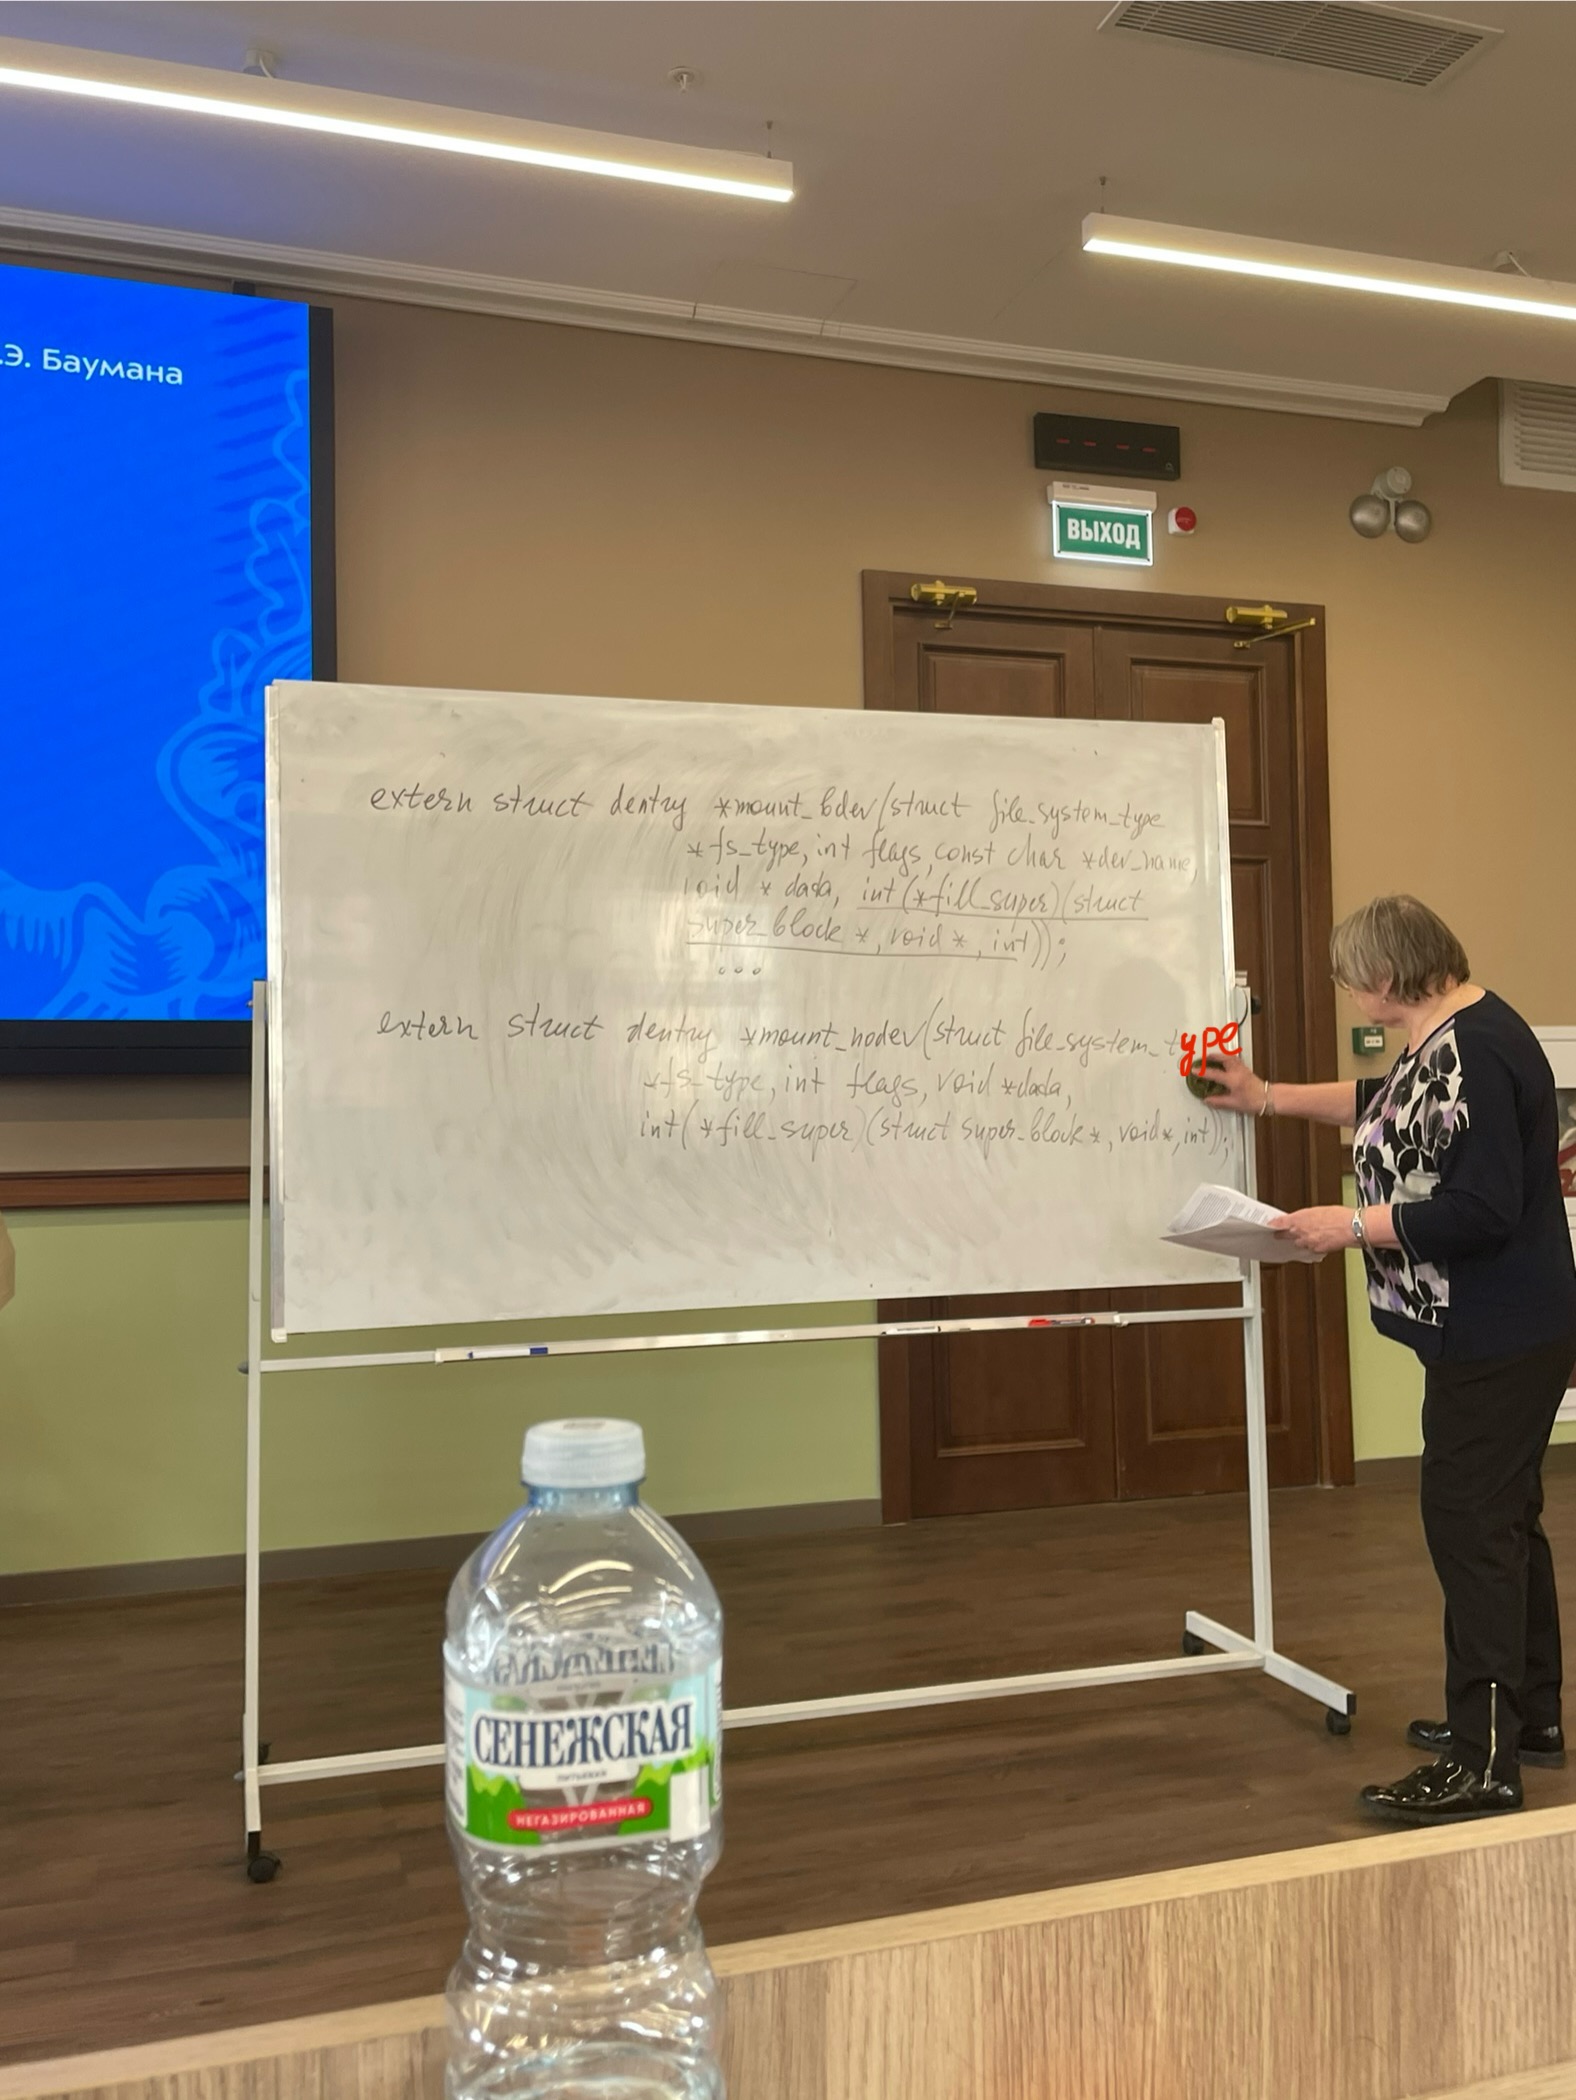 .Э. Баумана
ВЫХОД
extern struct dentry *mount_bdev(struct file_system_type
*fs_type, int flags, const char *dev_name,
void * data, int(*fill_super)(struct
super_block *, void *, int));
...
extern struct dentry *mount_nodev(struct file_system_type
*fs_type, int flags, void *data,
int(*fill_super)(struct super_block *, void *, int));
СЕНЕЖСКАЯ
ПИТЬЕВАЯ
НЕГАЗИРОВАННАЯ